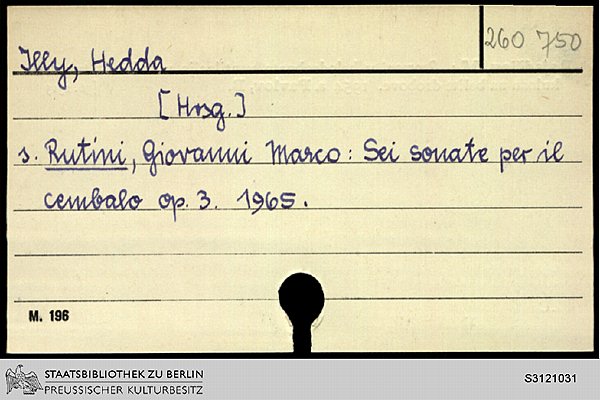 260 750
Illy, Hedda
[Hrsg.]
s. Rutini, Giovanni Marco: Sei sonate per il
cembalo op. 3. 1965.
M. 196
STAATSBIBLIOTHEK ZU BERLIN
PREUSSISCHER KULTURBESITZ
S3121031